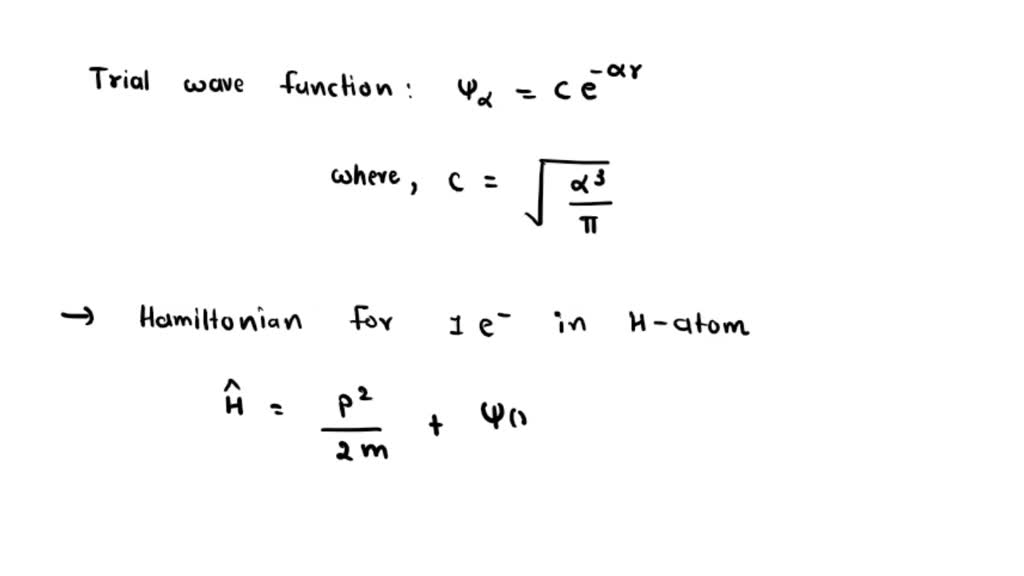 Trial wave function: ψα = c e^-αr
where, c = √(α³/π)
→ Hamiltonian for 1 e⁻ in H-atom
Ĥ = p²/2m + ψ()